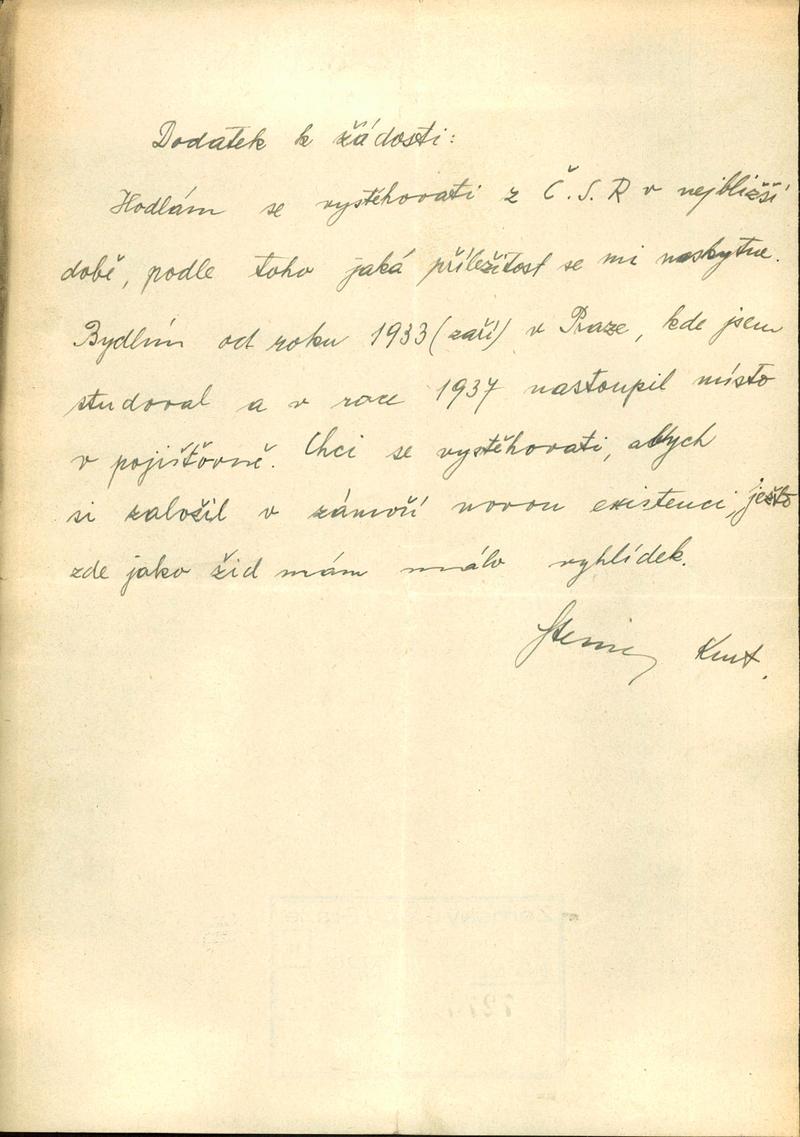 Dodatek k žádosti:
Hodlám se vystěhovati z Č.S.R v nejbližší
době, podle toho jaká příležitost se mi naskytne.
Bydlím od roku 1933 (září) v Praze, kde jsem
studoval a v roce 1937 nastoupil místo
v pojišťovně. Chci se vystěhovati, abych
si založil v zámoří novou existenci, ješto
zde jako žid mám málo vyhlídek.
Kurt